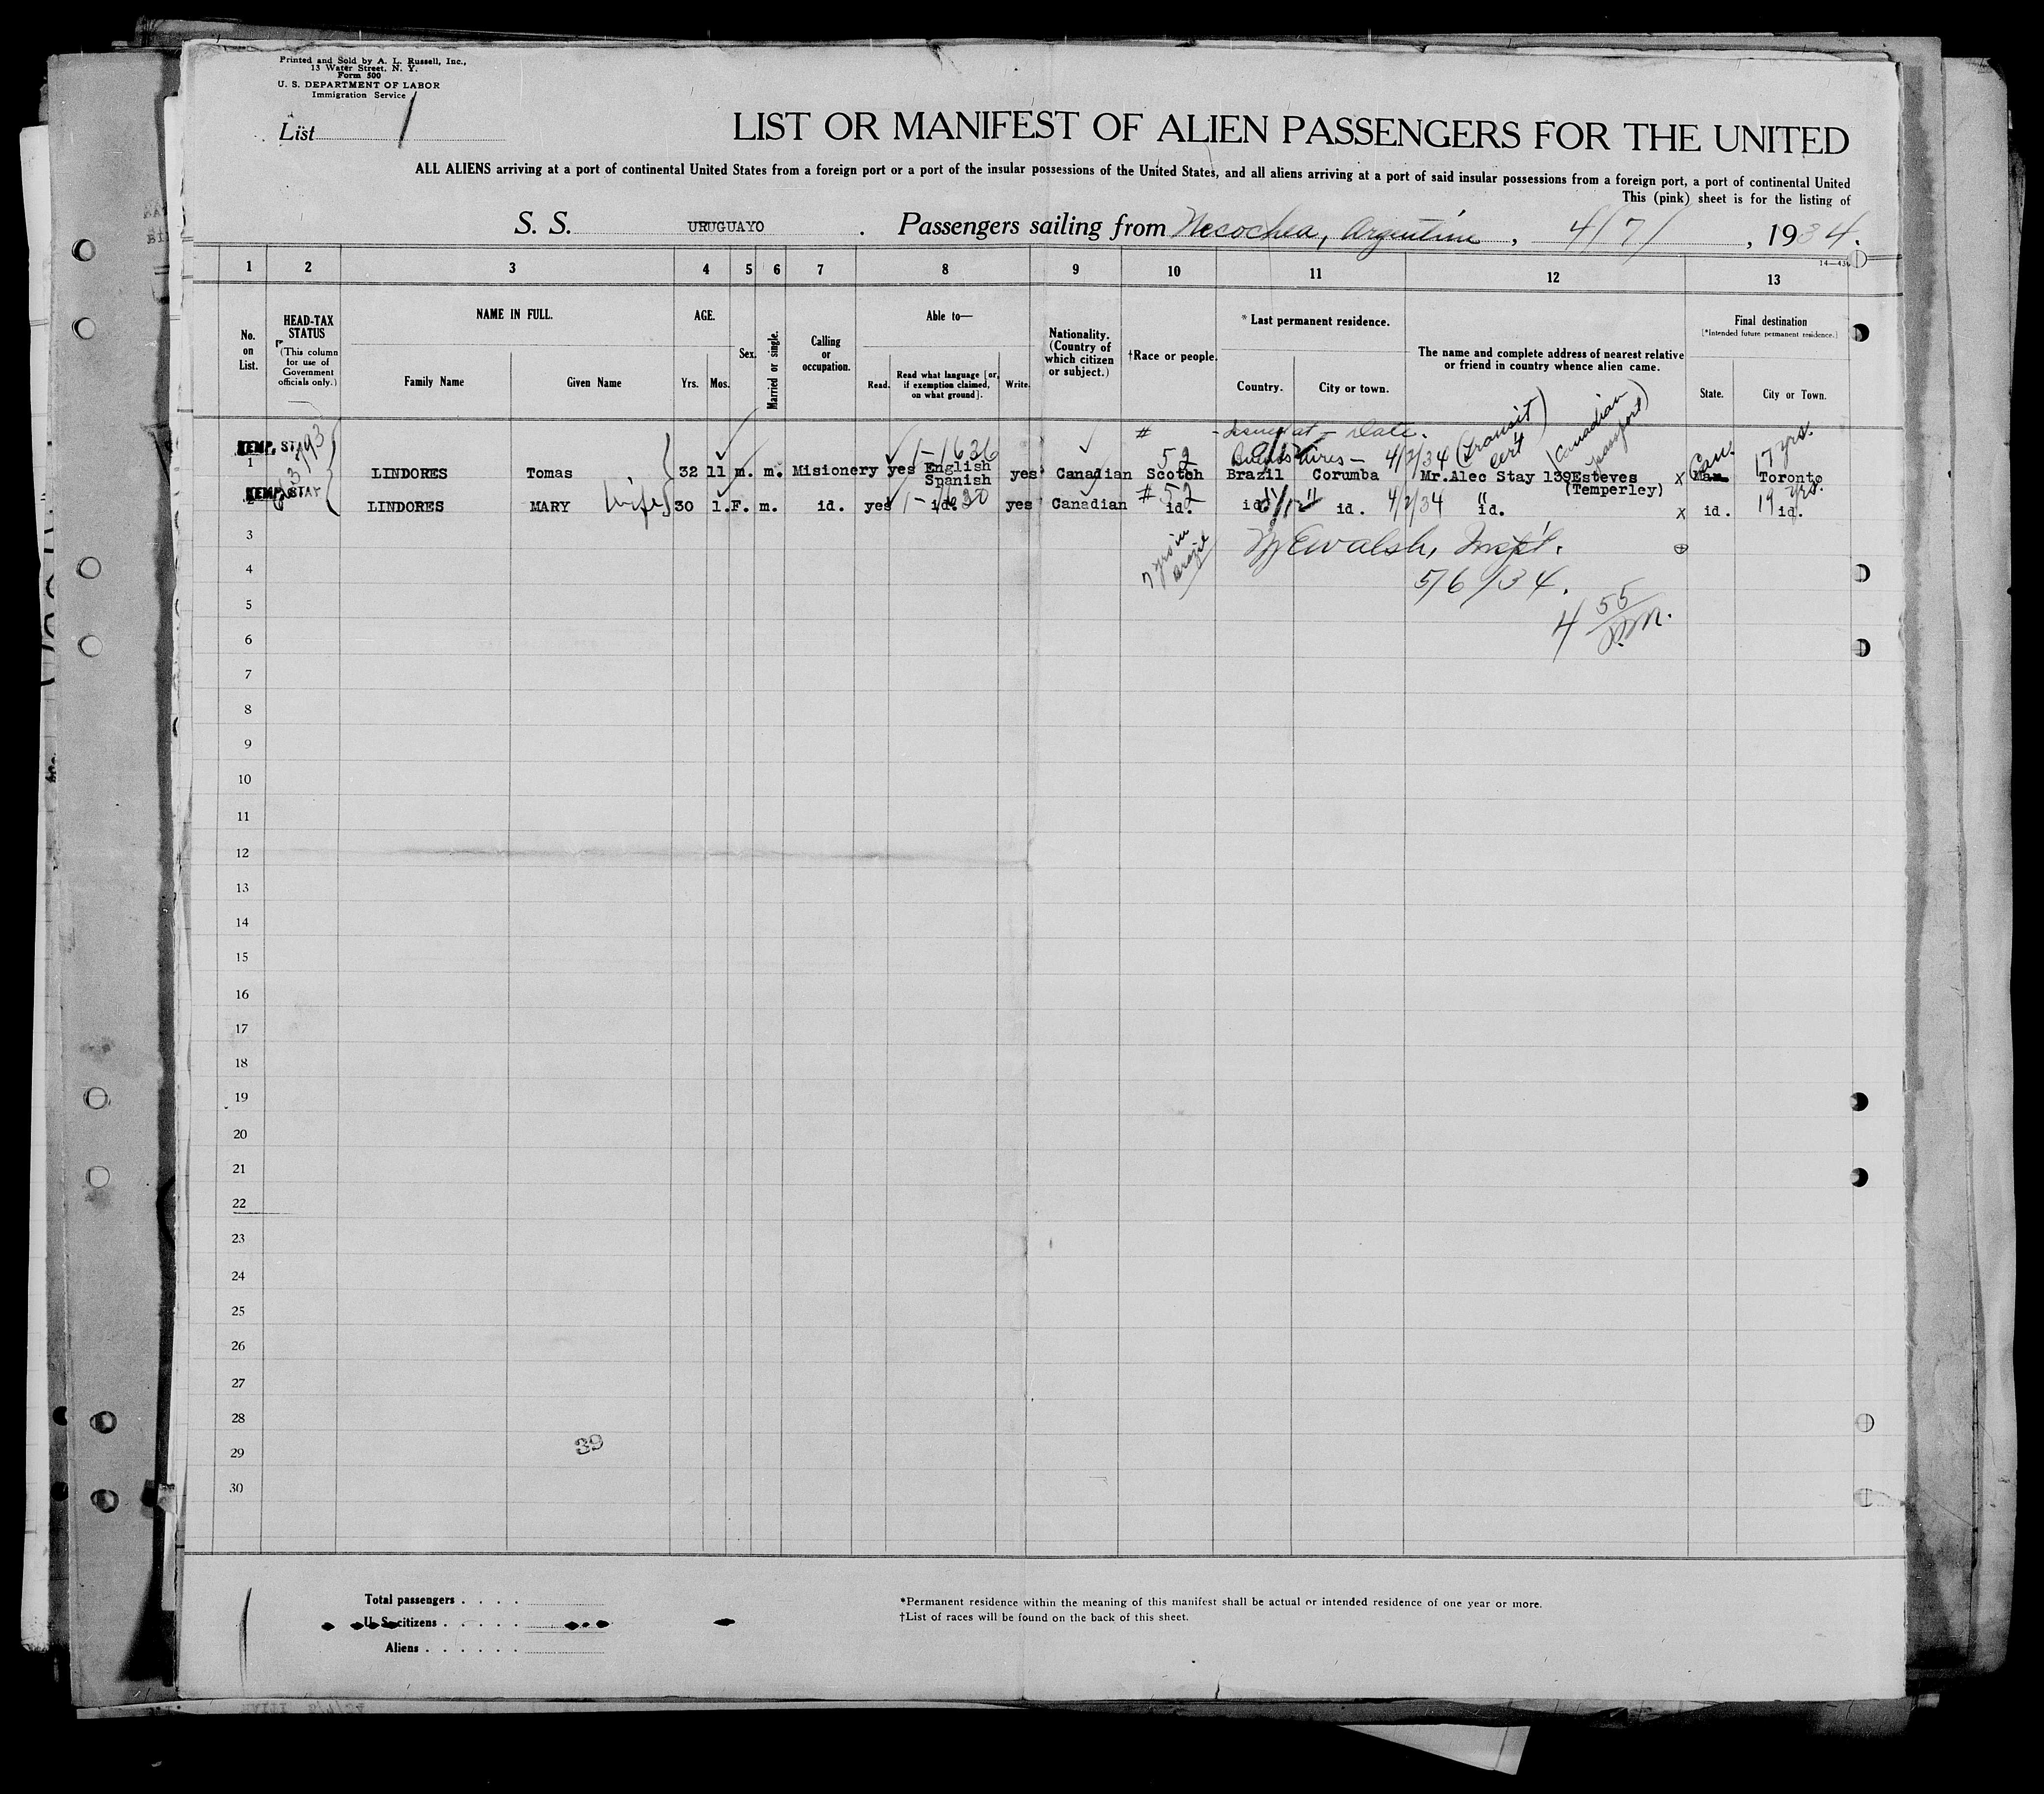 Printed and Sold by A. L. Russell, Inc.,
13 Water Street, N. Y.
Form 500
U. S. DEPARTMENT OF LABOR
Immigration Service
List 1
LIST OR MANIFEST OF ALIEN PASSENGERS FOR THE UNITED
ALL ALIENS arriving at a port of continental United States from a foreign port or a port of the insular possessions of the United States, and all aliens arriving at a port of said insular possessions from a foreign port, a port of continental United
This (pink) sheet is for the listing of
S. S. URUGUAYO . Passengers sailing from Necochea, Argentine , 4/7/ , 1934.
1 2 3 4 5 6 7 8 9 10 11 12 13
14—430
No. on List.
HEAD-TAX STATUS
(This column for use of Government officials only.)
NAME IN FULL.
Family Name
Given Name
AGE.
Yrs. Mos.
Sex.
Married or single.
Calling or occupation.
Able to—
Read.
Read what language [or, if exemption claimed, on what ground].
Write.
Nationality. (Country of which citizen or subject.)
†Race or people.
* Last permanent residence.
Country.
City or town.
The name and complete address of nearest relative or friend in country whence alien came.
Final destination
[*Intended future permanent residence.]
State.
City or Town.
# - Issued at - Date.
(Transit Cert)
(Canadian passport)
1-1636
52 Buenos Aires - 4/2/34
Can. 17 yrs.
TEMP. STAY
1 LINDORES Tomas 32 11 m. m. Misionery yes English Spanish yes Canadian Scotch Brazil Corumba Mr.Alec Stay 139Esteves (Temperley) x Man Toronto
TEMP. STAY
2 LINDORES MARY wife 30 1. F. m. id. yes id. yes Canadian id. id. id. id. x id. id.
1-1630 # 52 " " 4/2/34 " 19 yrs.
7 yrs in Brazil
3
W E Walsh, Insp't.
4
5/6/34.
5
4 55 P.M.
6
7
8
9
10
11
12
13
14
15
16
17
18
19
20
21
22
23
24
25
26
27
28
29
30
39
Total passengers . . . .
U. S. citizens . . . . .
Aliens . . . . . .
*Permanent residence within the meaning of this manifest shall be actual or intended residence of one year or more.
†List of races will be found on the back of this sheet.